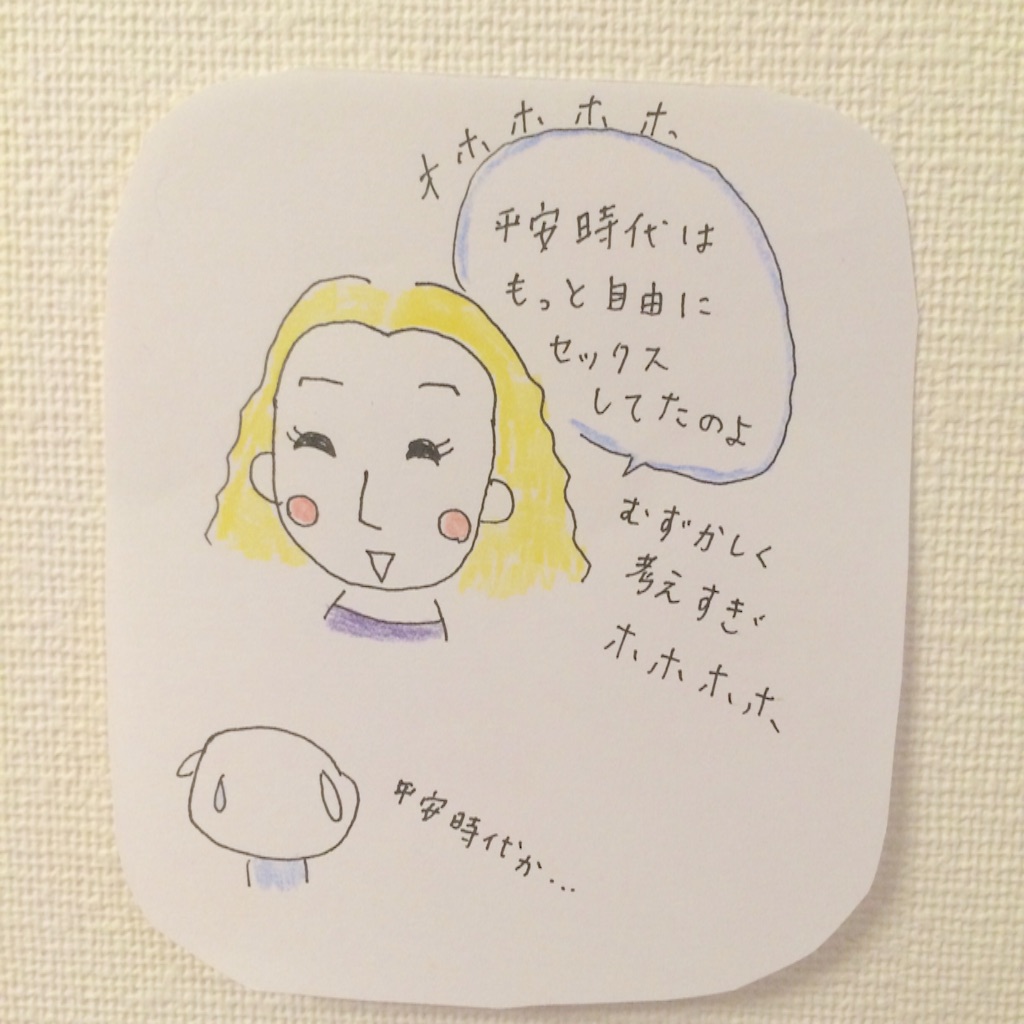 オホホホホ
平安時代は
もっと自由に
セックス
してたのよ
むずかしく
考えすぎ
ホホホホ
平安時代か…